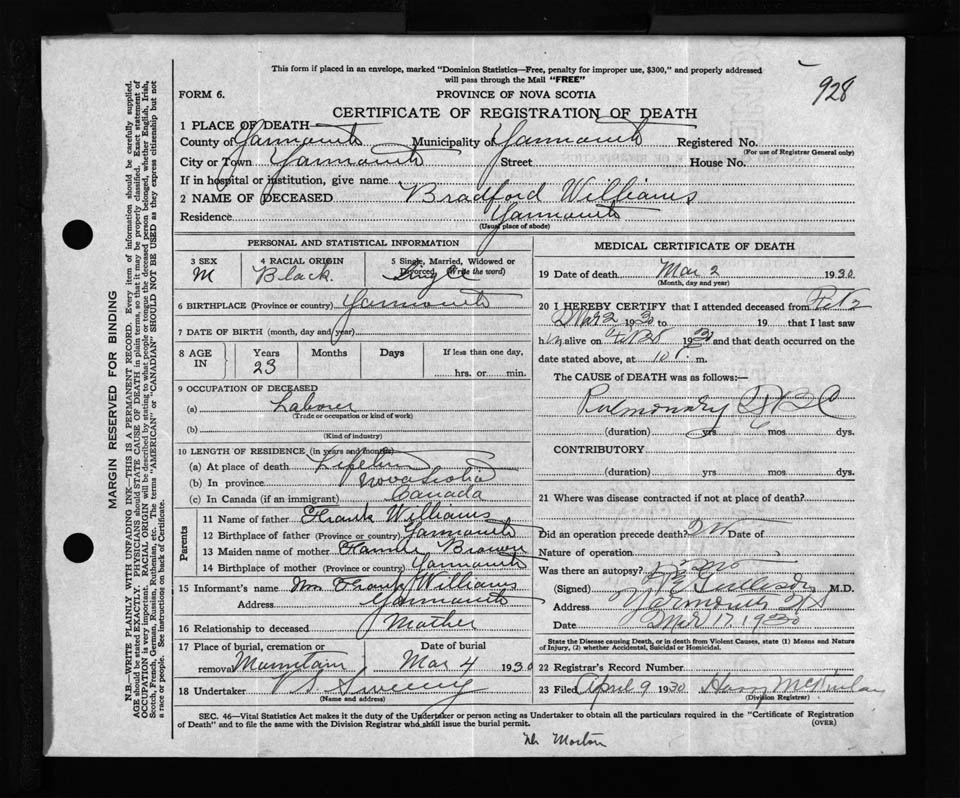 This form if placed in an envelope, marked "Dominion Statistics—Free, penalty for improper use, $300," and properly addressed
will pass through the Mail "FREE"
928
FORM 6.
PROVINCE OF NOVA SCOTIA
CERTIFICATE OF REGISTRATION OF DEATH
1 PLACE OF DEATH
County of Yarmouth Municipality of Yarmouth Registered No.
(For use of Registrar General only)
City or Town Yarmouth Street House No.
If in hospital or institution, give name
2 NAME OF DECEASED Bradford Williams
Residence Yarmouth
(Usual place of abode)
PERSONAL AND STATISTICAL INFORMATION
3 SEX
M
4 RACIAL ORIGIN
Black
5 Single, Married, Widowed or
Divorced (Write the word)
Single
6 BIRTHPLACE (Province or country) Yarmouth
7 DATE OF BIRTH (month, day and year)
8 AGE IN
Years Months Days If less than one day,
23
hrs. or min.
9 OCCUPATION OF DECEASED
(a) Laborer
(Trade or occupation or kind of work)
(b)
(Kind of industry)
10 LENGTH OF RESIDENCE (in years and months)
(a) At place of death Lifetime
(b) In province Nova Scotia
(c) In Canada (if an immigrant) Canada
Parents
11 Name of father Frank Williams
12 Birthplace of father (Province or country) Yarmouth
13 Maiden name of mother Fannie Brown
14 Birthplace of mother (Province or country) Yarmouth
15 Informant's name Mrs Frank Williams
Address Yarmouth
16 Relationship to deceased Mother
17 Place of burial, cremation or Date of burial
removal Mountain Mar 4 1930
18 Undertaker V S Sweeny
(Name and address)
MEDICAL CERTIFICATE OF DEATH
19 Date of death Mar 2 1930
(Month, day and year)
20 I HEREBY CERTIFY that I attended deceased from
Mar 2 1930 to 19 that I last saw
him alive on 1930 and that death occurred on the
date stated above, at 10 P. m.
The CAUSE of DEATH was as follows:—
Pulmonary TBC
(duration) yrs 6 mos dys.
CONTRIBUTORY
(duration) yrs mos dys.
21 Where was disease contracted if not at place of death?
Did an operation precede death? Date of
Nature of operation
Was there an autopsy?
(Signed) M.D.
Address Yarmouth NS
Date Mar 17 1930
State the Disease causing Death, or in death from Violent Causes, state (1) Means and Nature
of Injury, (2) whether Accidental, Suicidal or Homicidal.
22 Registrar's Record Number
23 Filed April 9 1930 Harry
(Division Registrar)
SEC. 46—Vital Statistics Act makes it the duty of the Undertaker or person acting as Undertaker to obtain all the particulars required in the "Certificate of Registration
of Death" and to file the same with the Division Registrar who shall issue the burial permit.
(OVER)
Dr Morton
MARGIN RESERVED FOR BINDING
N.B.—WRITE PLAINLY WITH UNFADING INK—THIS IS A PERMANENT RECORD. Every item of information should be carefully supplied.
AGE should be stated EXACTLY. PHYSICIANS should STATE CAUSE OF DEATH in plain terms, so that it may be properly classified. Exact statement of
OCCUPATION is very important. RACIAL ORIGIN will be described by stating to what people or tongue the deceased person belonged, whether English, Irish,
Scotch, French, German, Russian, Ruthenian, etc. The terms "AMERICAN" or "CANADIAN" SHOULD NOT BE USED as they express citizenship but not
a race or people. See instructions on back of Certificate.